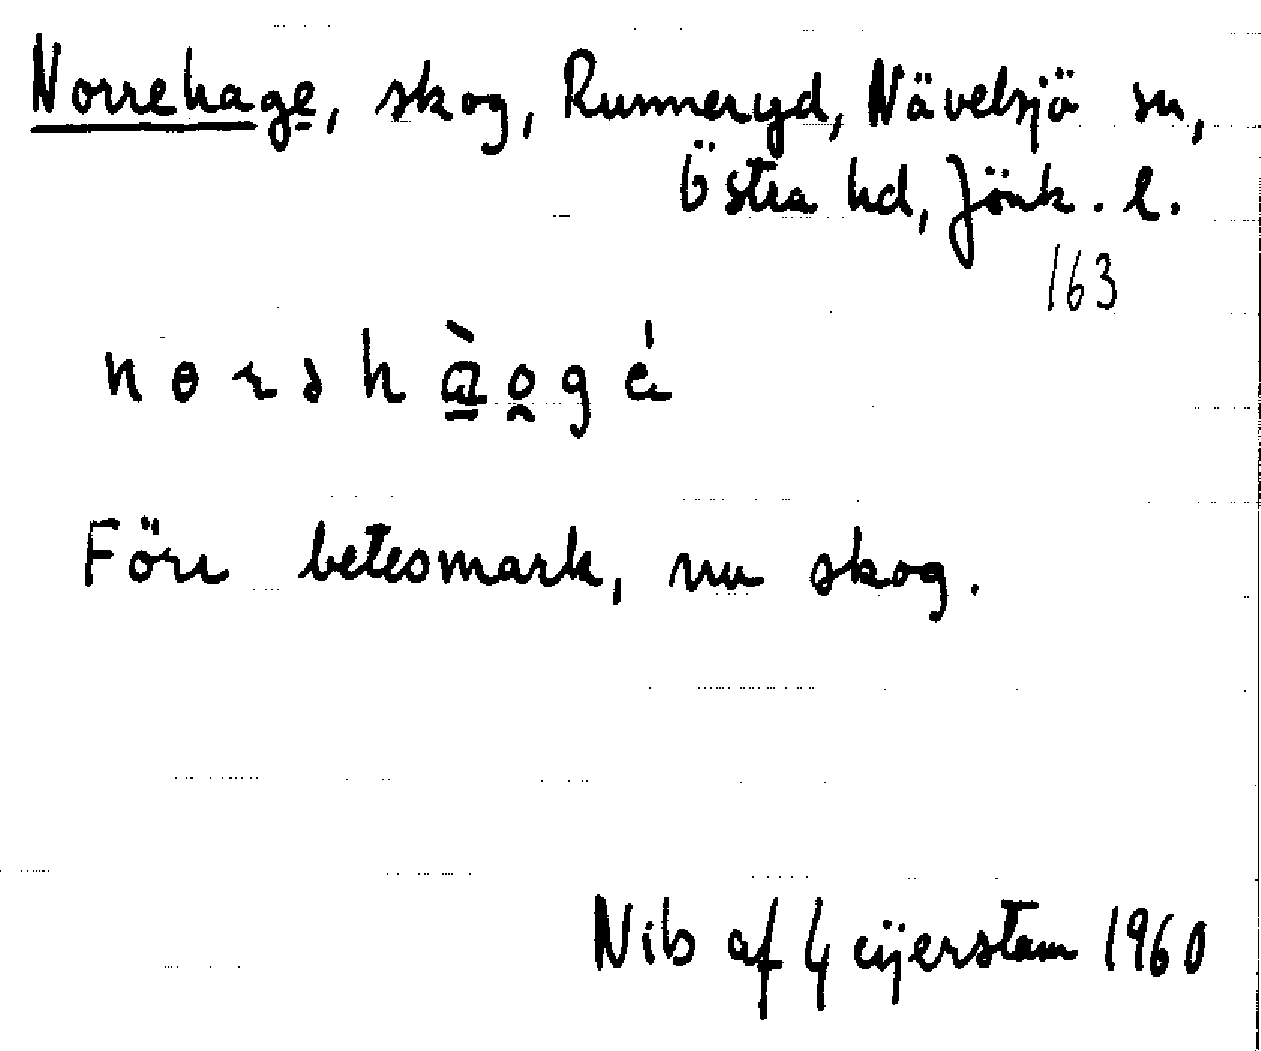 Norrehage, skog, Runneryd, Nävelsjö sn,
Östra hd, Jönk. l.
163
Förr betesmark, nu skog.
Nils af Geijerstam 1960